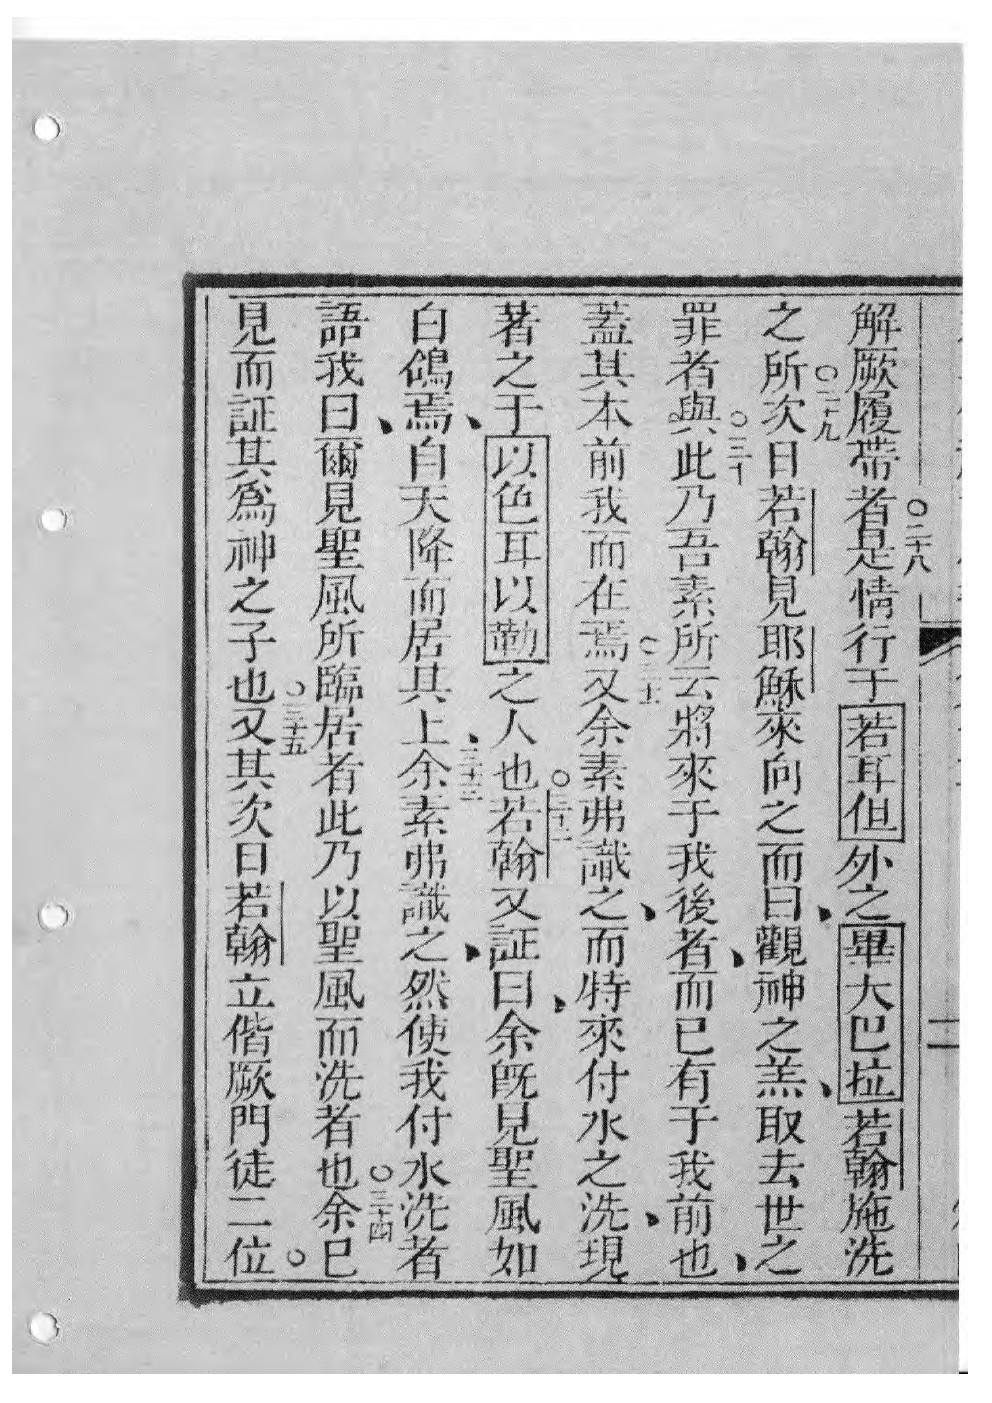 解厥履帶者○二十八是情行于若耳但外之畢大巴拉若翰施洗
之所○二十九次日若翰見耶穌來向之而曰、觀神之羔、取去世之
罪者與。○三十此乃吾素所云將來于我後者、而已有于我前也、
葢其本前我而在焉○三十一又余素弗識之、而特來付水之洗、現
著之于以色耳以勒之人也○三十二若翰又証曰、余既見聖風如
白鴿焉、自天降而居其上、三十三余素弗識之、然使我付水洗者
語我曰、爾見聖風所臨居者此乃以聖風而洗者也○三十四余已
見而証其爲神之子也○三十五又其次日若翰立偕厥門徒二位○
二